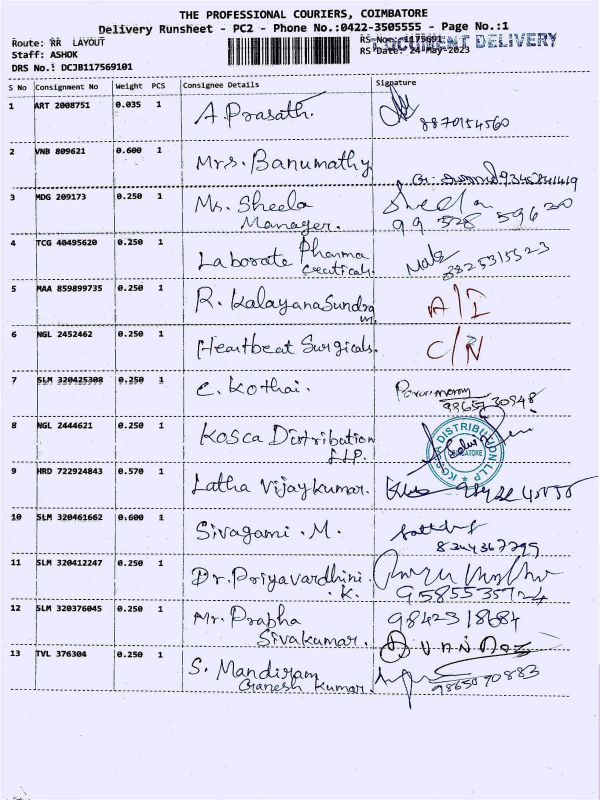 THE PROFESSIONAL COURIERS, COIMBATORE
Delivery Runsheet - PC2 - Phone No.:0422-3505555 - Page No.:1
Route: RR LAYOUT
RS No.: 1175691
DOCUMENT DELIVERY
Staff: ASHOK
RS Date: 24-May-2023
DRS No.: DCJB117569101
S No Consignment No Weight PCS Consignee Details Signature
1 ART 2008751 0.035 1 A. Prasath.
8870154560
2 VNB 809621 0.600 1 Mrs. Banumathy
9345841419
3 MDG 209173 0.250 1 Ms. Sheela Sheela
Manager. 99 528 59620
4 TCG 40495620 0.250 1 Laborate Pharma
ceuticals.
5 MAA 859899735 0.250 1 R. KalayanaSundra A/I
m.
6 NGL 2452462 0.250 1 Heartbeat Surgicals. C/N
7 SLM 320425308 0.250 1 C. Kothai.
9865730948
8 NGL 2444621 0.250 1 Kosca Distribution
LLP.
DISTRIBUTION LLP
9 HRD 722924843 0.570 1 Latha Vijaykumar.
10 SLM 320461662 0.600 1 Sivagami . M.
8244367295
11 SLM 320412247 0.250 1 Dr. Priyavardhini
. K. 9585535724
12 SLM 320376045 0.250 1 Mr. Prabha 9842318684
Sivakumar.
13 TVL 376304 0.250 1 S. Mandiram
Ganesh Kumar. 9865090883